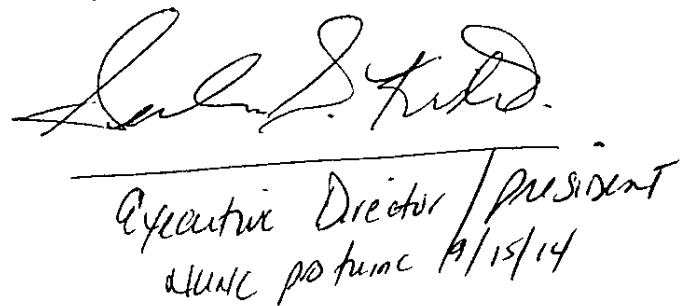 S.
Executive Director / President
NUNC po tunc 9/15/14